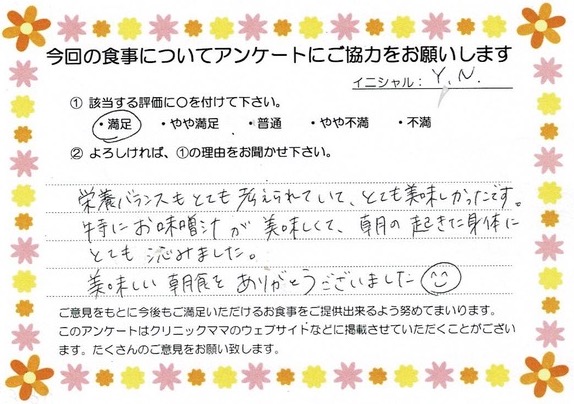 今回の食事についてアンケートにご協力をお願いします
イニシャル： Y.N.
① 該当する評価に〇を付けて下さい。
・満足 ・やや満足 ・普通 ・やや不満 ・不満
② よろしければ、①の理由をお聞かせ下さい。
栄養バランスもとても考えられていて、とても美味しかったです。
特にお味噌汁が美味しくて、朝の起きた身体に
とても沁みました。
美味しい朝食を ありがとうございました
ご意見をもとに今後もご満足いただけるお食事をご提供出来るよう努めてまいります。
このアンケートはクリニックママのウェブサイトなどに掲載させていただくことがござい
ます。たくさんのご意見をお願い致します。